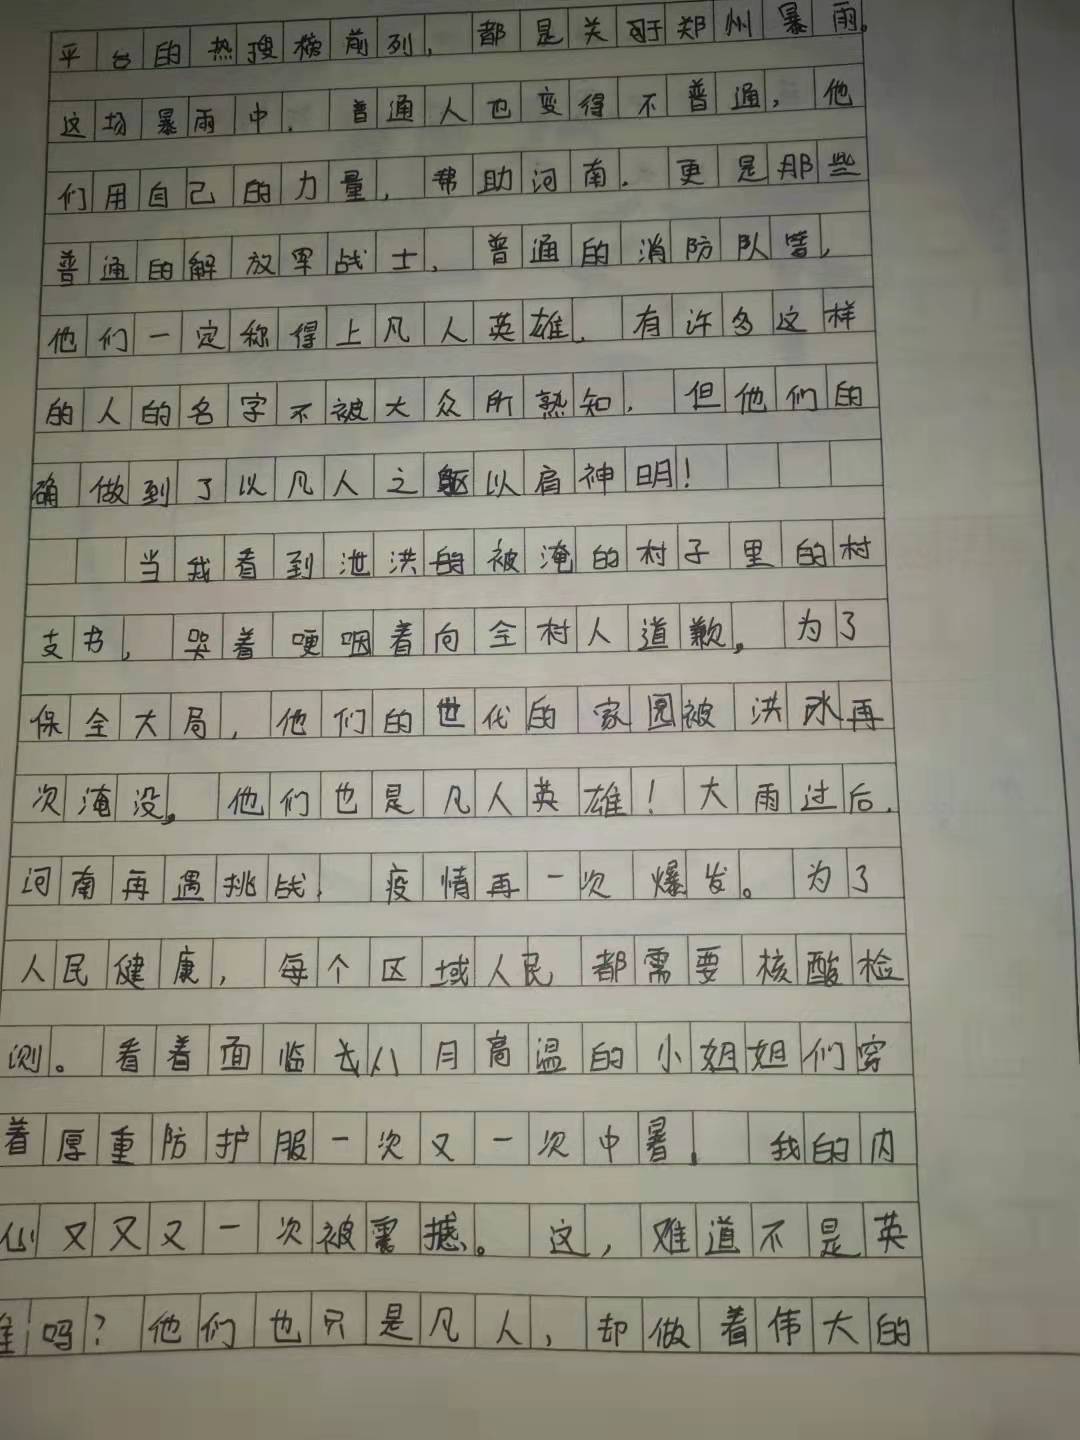 平台的热搜榜前列，都是关于郑州暴雨。
这场暴雨中，普通人也变得不普通，他
们用自己的力量，帮助河南．更是那些
普通的解放军战士，普通的消防队员，
他们一定称得上凡人英雄．有许多这样
的人的名字不被大众所熟知．但他们的
确做到了以凡人之躯以肩神明！
当我看到泄洪的被淹的村子里的村
支书，哭着哽咽着向全村人道歉。为了
保全大局，他们的世代的家园被洪水再
次淹没。他们也是凡人英雄！大雨过后，
河南再遇挑战．疫情再一次爆发。为了
人民健康，每个区域人民都需要核酸检
测。看着面临八月高温的小姐姐们穿
着厚重防护服一次又一次中暑，我的内
心又又又一次被震撼。这，难道不是英
雄吗？他们也只是凡人，却做着伟大的